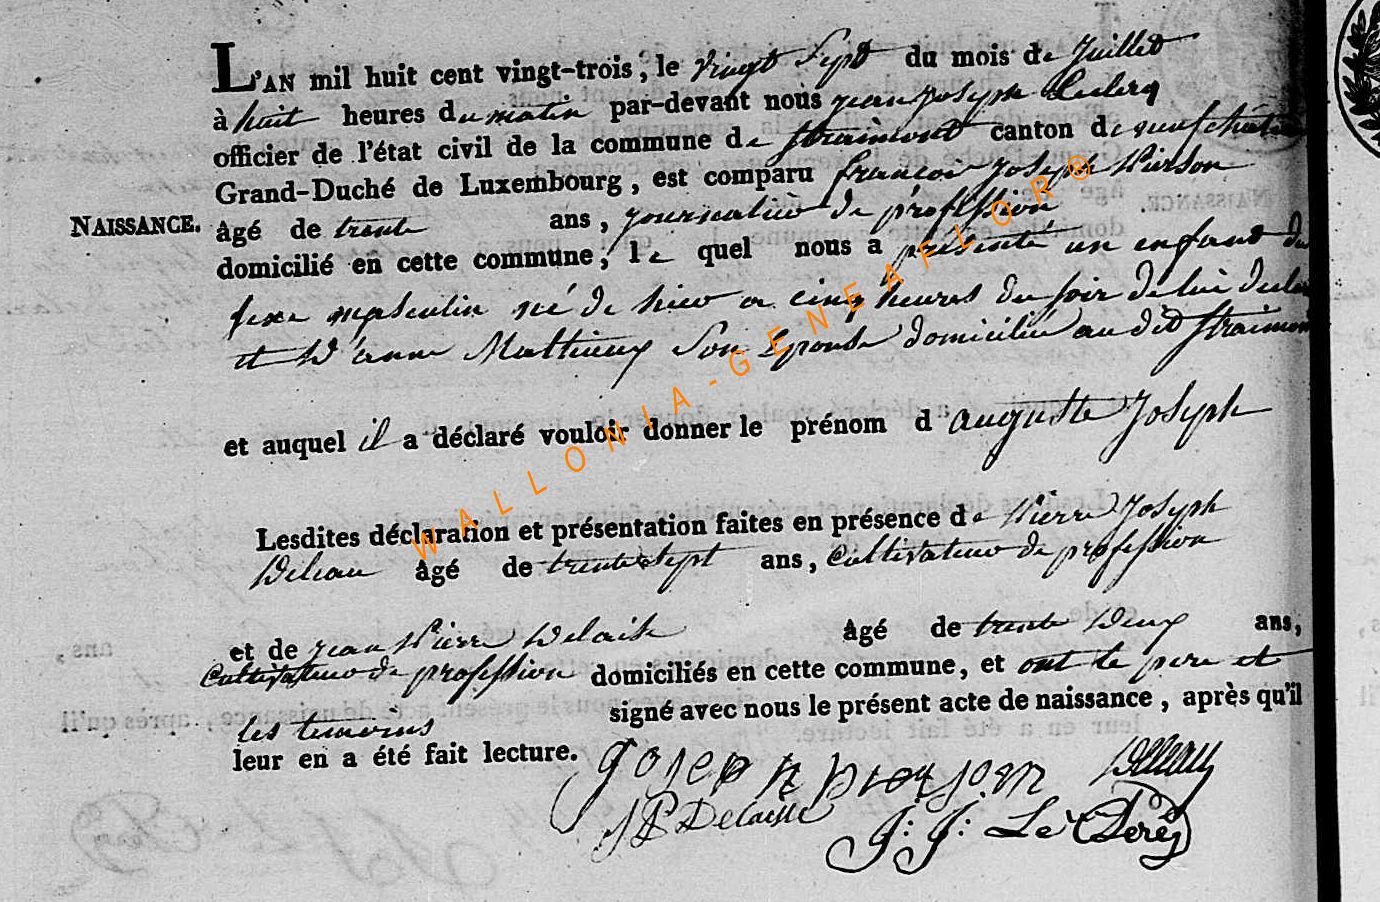 L'AN mil huit cent vingt-trois, le vingt Sept du mois de Juillet
à huit heures du matin par-devant nous jean joseph Leclerq
officier de l'état civil de la commune de Straimont canton de neufchateau
Grand-Duché de Luxembourg, est comparu francois Joseph Pierson
NAISSANCE. âgé de trente ans, journalier de profession
domicilié en cette commune, le quel nous a présenté un enfant du
sexe masculin né de hier a cinq heures du soir de lui
et D'anne Mathieux Son Epouse domiciliée au dit Straimont
et auquel il a déclaré vouloir donner le prénom d'auguste Joseph
Lesdites déclaration et présentation faites en présence de Pierre Joseph
Deleau âgé de trente sept ans, Cultivateur de profession
et de jean Pierre Delaisse âgé de trente Deux ans,
Cultivateur de profession domiciliés en cette commune, et ont le pere et
les temoins signé avec nous le présent acte de naissance, après qu'il
leur en a été fait lecture.
Joseph pierson Delleau
JP Delaisse J: J: Le Clerq
WALLONIA-GENEAFLOR®